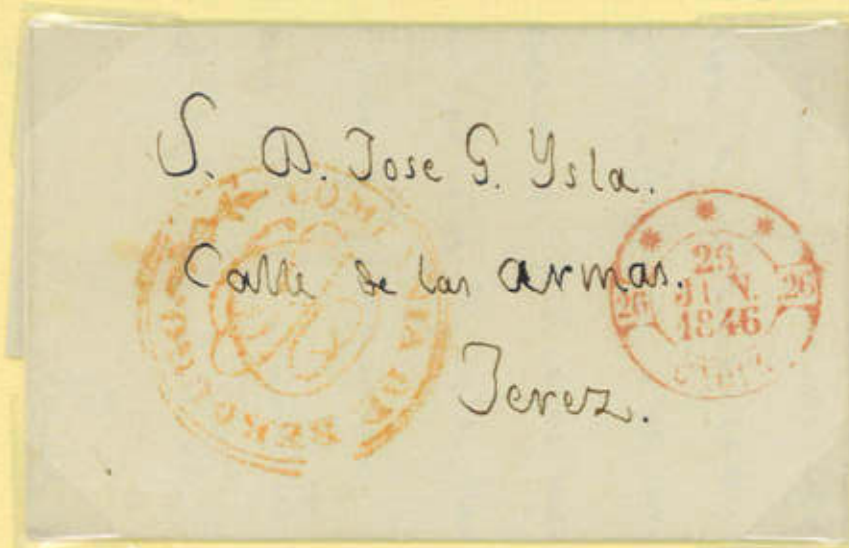 S. D. Jose G. Ysla.
Calle de las armas.
Jerez.
26
JUN.
1846
26
26